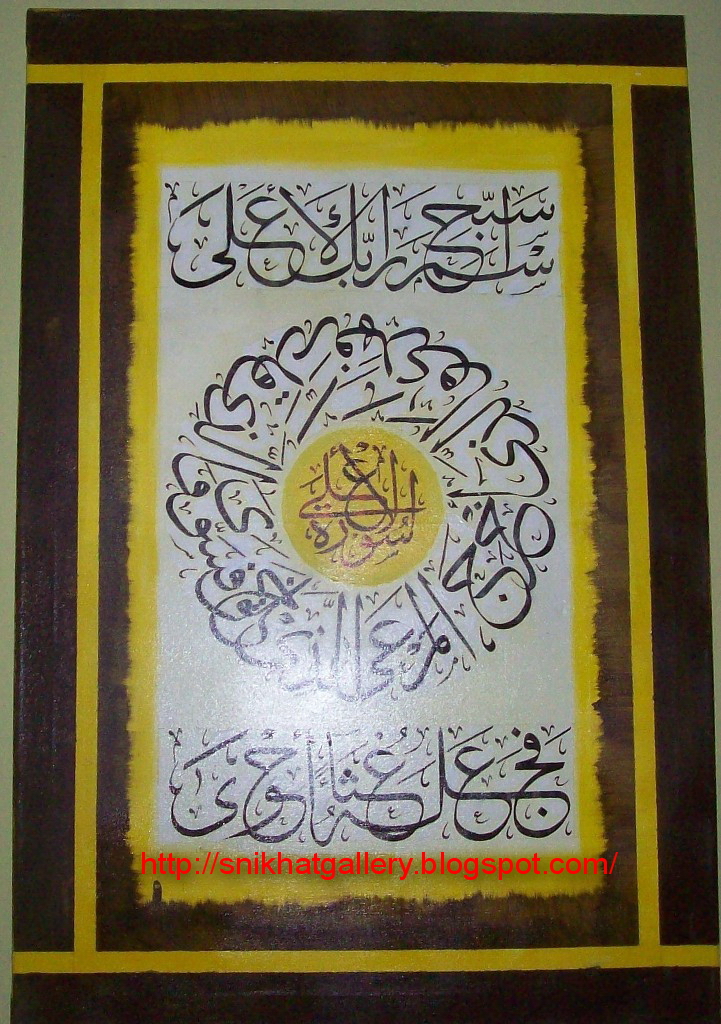 سَبِّحِ اسْمَ رَبِّكَ الْأَعْلَى
الَّذِي خَلَقَ فَسَوَّى وَالَّذِي قَدَّرَ فَهَدَى وَالَّذِي أَخْرَجَ الْمَرْعَى
سورة الأعلى
فَجَعَلَهُ غُثَاءً أَحْوَى
http://snikhatgallery.blogspot.com/